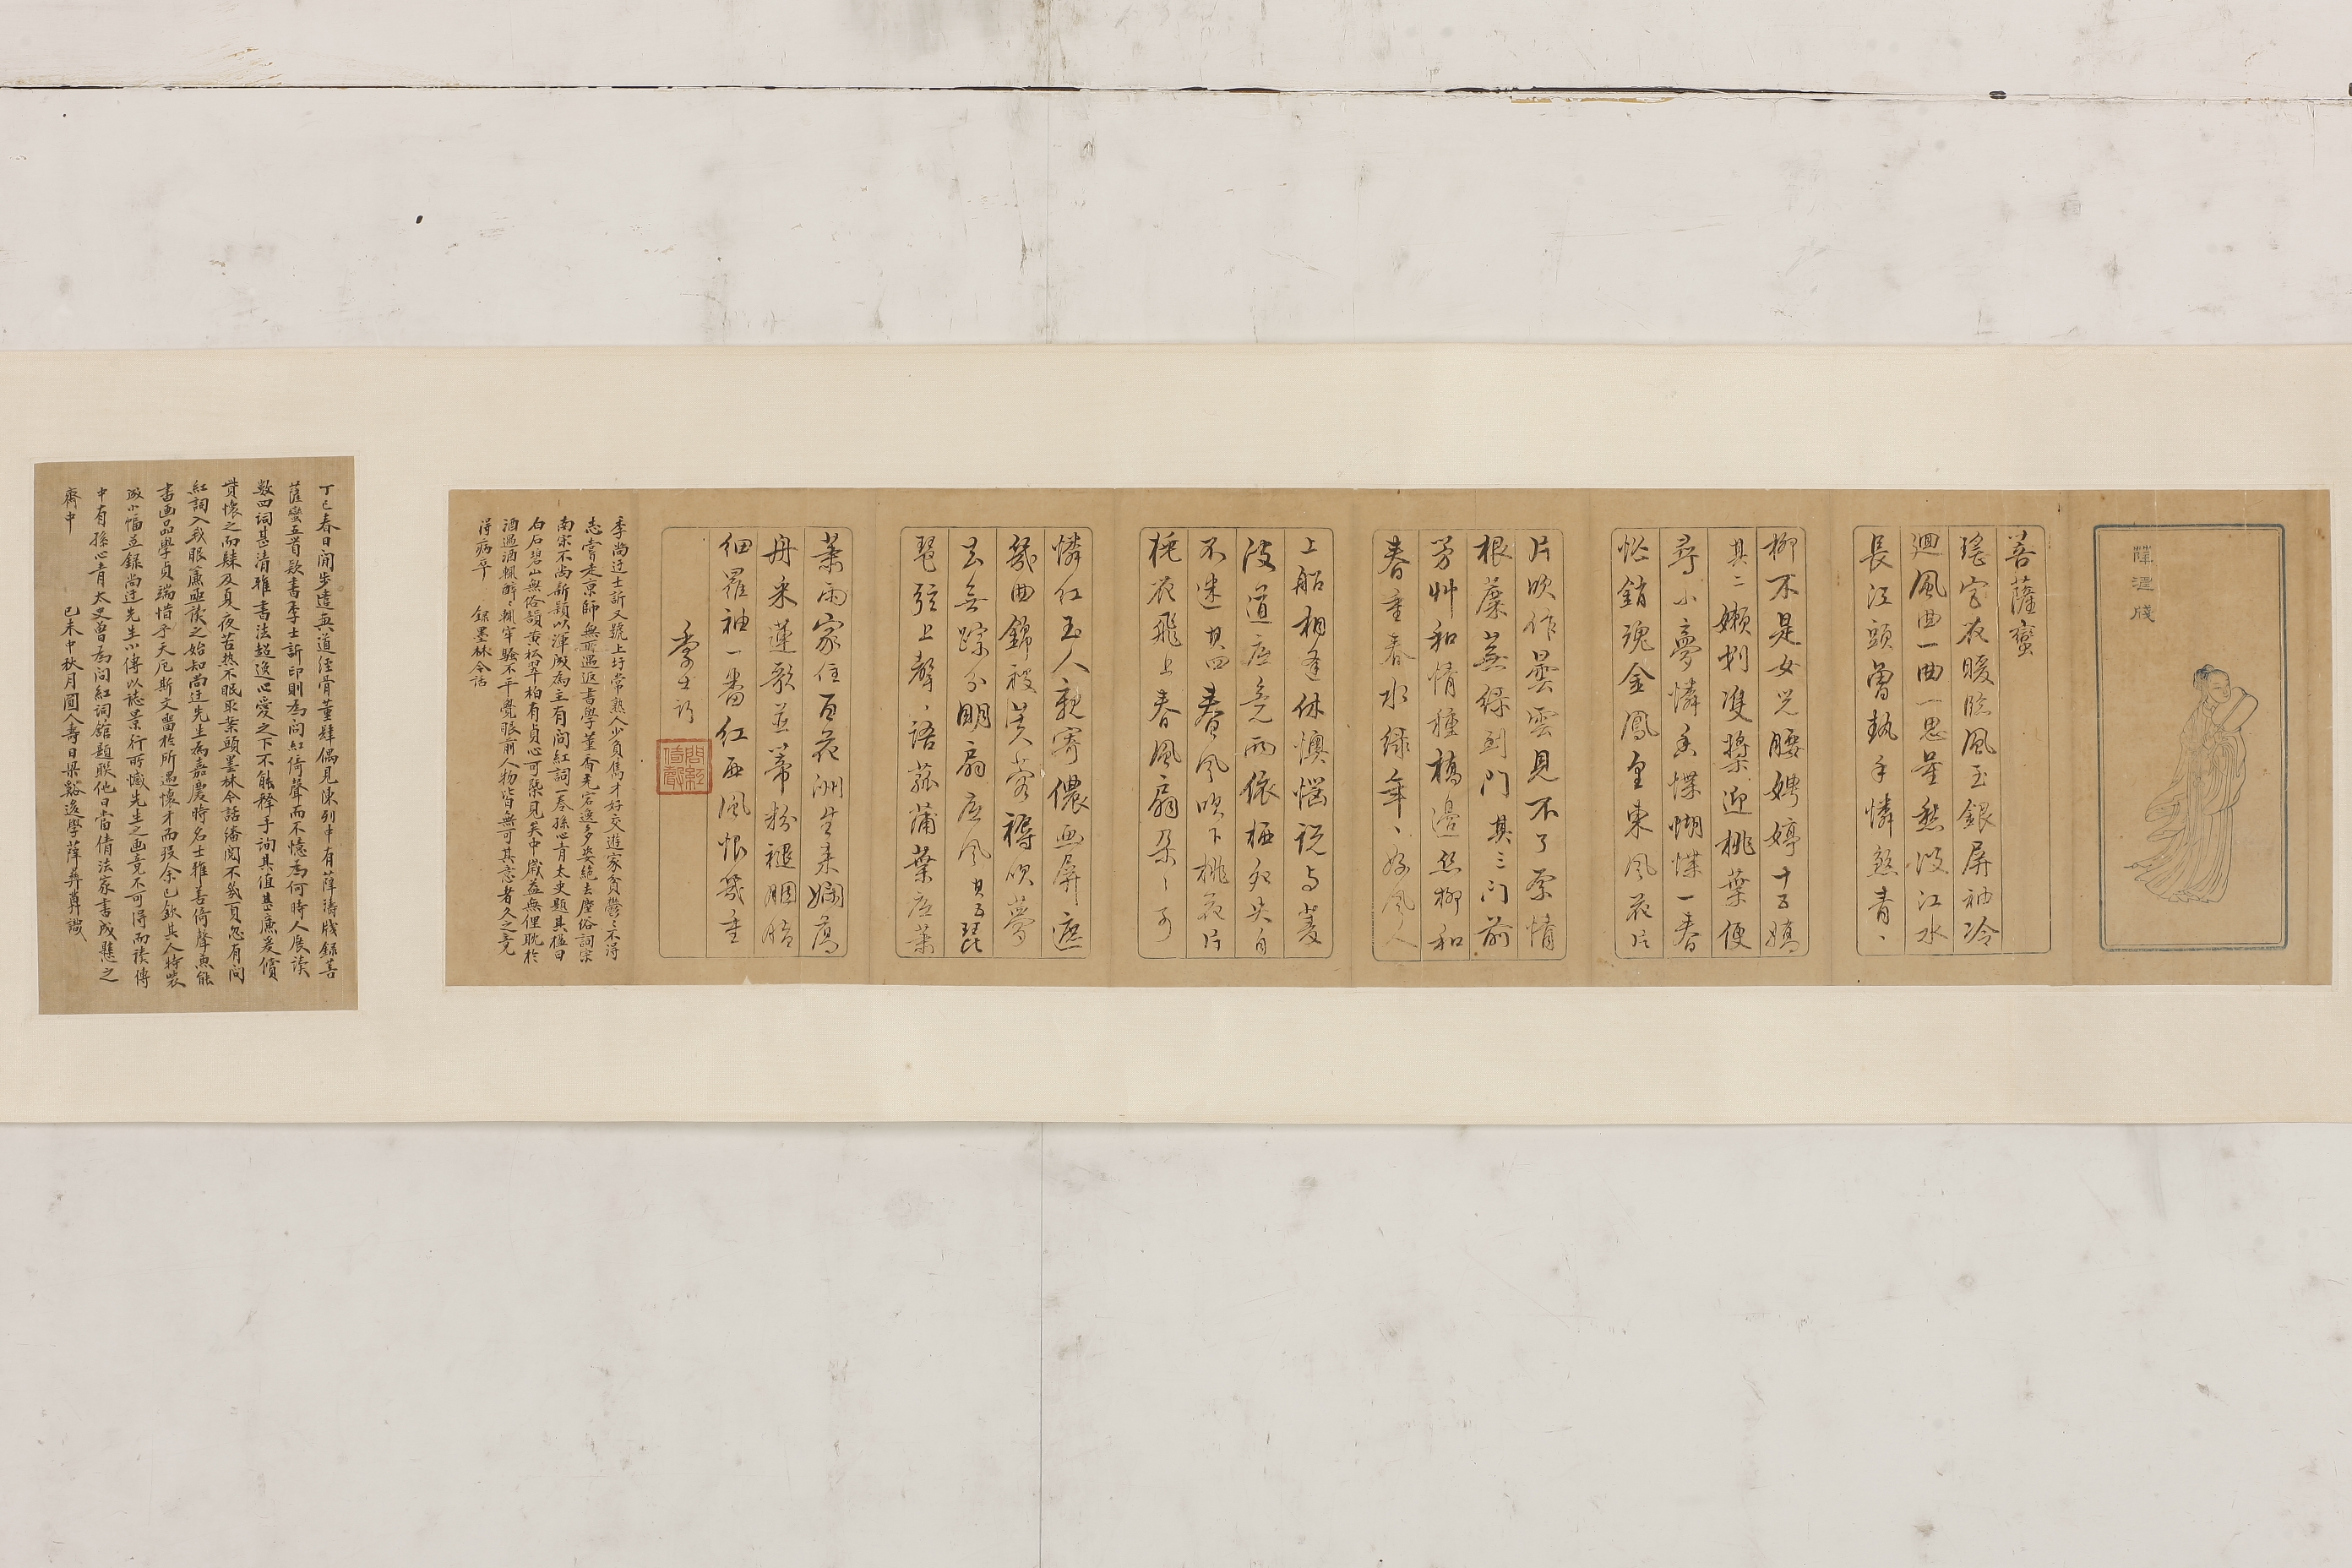 薛濤牋
菩薩蠻
瑤窓夜暖臨風玉銀屏袖冷
廻風曲一曲一思量愁深江水
長江頭曾執手憐煞青〻
柳不是女兒腰娉婷十五嬌
其二嬾刺雙槳迎桃葉便
尋小夢憐香蝶蝴蝶一春
忙銷魂金鳳皇東風花片
片吹作曇雲見不了系情
根蘼蕪綠到門其三門前
芳艸和情種橋邊絲柳和
春重春水綠年〻好風人
上船相逢休懊惱說与菱
波道底是兩依栖鴛央自
不迷其四春風吹下桃花片
桃花飛上春風扇朵〻可
憐红玉人親寄儂画屏遮
幾曲錦被芙蓉褥吹夢
去無蹤分明扇底風其五琵
琶弦上聲〻語菰蒲葉底葉
葉雨家住百花洲生來嫻蕩
舟采蓮歌並蒂粉褪胭脂
细羅袖一番红西風恨幾重
季士訢
問紅
倚聲
季尚迂士訢又號上圩常熟人少負雋才好交遊家貧鬱〻不得
志嘗走京師無所遇返書學董香光宕逸多姿絕去塵俗詞宗
南宋不尚新穎以渾成為主有問紅詞一卷孫心青太史題其楹曰
白石碧山無俗韻黃松翠柏有貞心可槩見矣中歲益無俚耽於
酒遇酒輒醉〻輒牢騷不平覺眼前人物皆無可其意者久之竟
得病卒 錄墨林今話
丁巳春日閒步道與道徑骨董肆偶見陳列中有薛濤牋錄菩
薩蠻五首款書季士訢印則為問紅倚聲而不憶為何時人展讀
數四詞甚清雅書法超逸心愛之下不能釋手詢其值甚廉爰償
貲懷之而歸及夏夜苦热不眠取案頭墨林今話繙閱不幾頁忽有問
紅詞入我眼簾亟讀之始知尚迂先生為嘉慶時名士雅善倚聲兼能
書画品學貞瑞惜乎天厄斯文嗇於所遇懷才而歿余已欽其人特裝
成小幅並錄尚迂先生小傳以誌景行所憾先生之画竟不可得而讀傳
中有孫心青太史曾為問紅詞館題联他日當倩法家書成懸之
齋中 己未中秋月圓人壽日梁谿後學薛葬蕚識